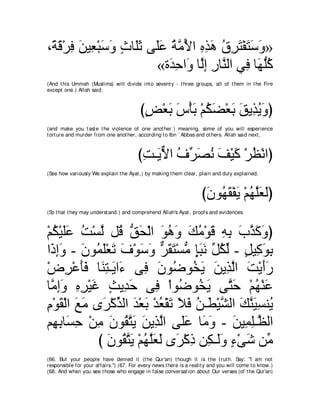 «وَسَتَفْتَرِقُ هَذِهِ الْأُمَّةُ عَلَى ثَلَاثٍ وَسَبْعِينَ فِرْقَةً،
كُلُّهَا فِي النَّارِ إِلَّا وَاحِدَةً»
(And this Ummah (Muslims) will divide into seventy - three groups, all of them in the Fire
except one.) Allah said;
(وَيُذِيقَ بَعْضَكُمْ بَأْسَ بَعْضٍ)
(and make you taste the violence of one another.) meaning, some of you will experience
torture and murder from one another, according to Ibn `Abbas and others. Allah said next,
(انْظُرْ كَيْفَ نُصَرِّفُ الاٌّيَـتِ)
(See how variously We explain the Ayat,) by making them clear, plain and duly explained,
(لَعَلَّهُمْ يَفْقَهُونَ)
(So that they may understand.) and comprehend Allah's Ayat, proofs and evidences.
(وَكَذَّبَ بِهِ قَوْمُكَ وَهُوَ الْحَقُّ قُل لَّسْتُ عَلَيْكُمْ
بِوَكِيلٍ - لِّكُلِّ نَبَإٍ مُّسْتَقَرٌّ وَسَوْفَ تَعْلَمُونَ - وَإِذَا
رَأَيْتَ الَّذِينَ يَخُوضُونَ فِى ءَايَـتِنَا فَأَعْرِضْ
عَنْهُمْ حَتَّى يَخُوضُواْ فِى حَدِيثٍ غَيْرِهِ وَإِمَّا
يُنسِيَنَّكَ الشَّيْطَـنُ فَلاَ تَقْعُدْ بَعْدَ الذِّكْرَى مَعَ الْقَوْمِ
الظَّـلِمِينَ - وَمَا عَلَى الَّذِينَ يَتَّقُونَ مِنْ حِسَابِهِم
مِّن شَىْءٍ وَلَـكِن ذِكْرَى لَعَلَّهُمْ يَتَّقُونَ )
(66. But your people have denied it (the Qur'an) though it is the truth. Say: "I am not
responsible for your affairs.") (67. For every news there is a reality and you will come to know.)
(68. And when you see those who engage in false conversation about Our verses (of the Qur'an)